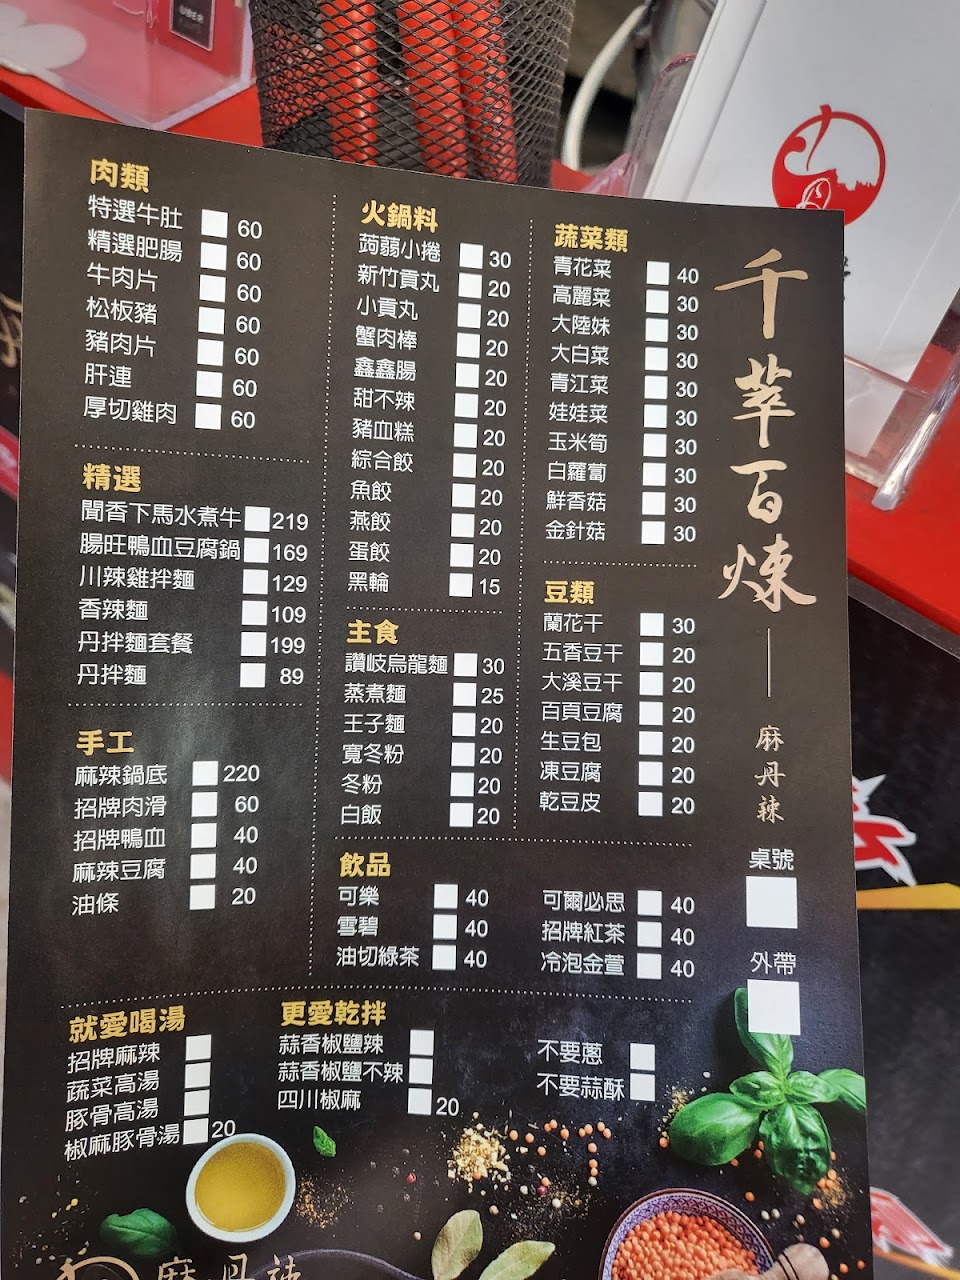 UBER
肉類
特選牛肚 60
精選肥腸 60
牛肉片 60
松板豬 60
豬肉片 60
肝連 60
厚切雞肉 60
精選
聞香下馬水煮牛 219
腸旺鴨血豆腐鍋 169
川辣雞拌麵 129
香辣麵 109
丹拌麵套餐 199
丹拌麵 89
手工
麻辣鍋底 220
招牌肉滑 60
招牌鴨血 40
麻辣豆腐 40
油條 20
火鍋料
蒟蒻小捲 30
新竹貢丸 20
小貢丸 20
蟹肉棒 20
鑫鑫腸 20
甜不辣 20
豬血糕 20
綜合餃 20
魚餃 20
燕餃 20
蛋餃 20
黑輪 15
主食
讚岐烏龍麵 30
蒸煮麵 25
王子麵 20
寬冬粉 20
冬粉 20
白飯 20
蔬菜類
青花菜 40
高麗菜 30
大陸妹 30
大白菜 30
青江菜 30
娃娃菜 30
玉米筍 30
白蘿蔔 30
鮮香菇 30
金針菇 30
豆類
蘭花干 30
五香豆干 20
大溪豆干 20
百頁豆腐 20
生豆包 20
凍豆腐 20
乾豆皮 20
飲品
可樂 40
雪碧 40
油切綠茶 40
可爾必思 40
招牌紅茶 40
冷泡金萱 40
千萃百煉
麻丹辣
桌號
外帶
就愛喝湯
招牌麻辣
蔬菜高湯
豚骨高湯
椒麻豚骨湯 20
更愛乾拌
蒜香椒鹽辣
蒜香椒鹽不辣
四川椒麻 20
不要蔥
不要蒜酥
麻丹辣